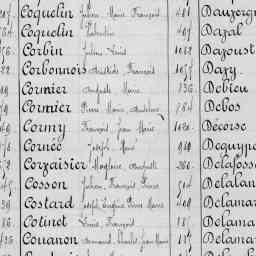 Coquelin Julien Marie François 481 Dauzorg
Coquelin Valentin 407 Dayal
Corbin Julien Louis 1082 Dayoust
Corbonnois Aristide François 1077 Dazy
Cormier Auguste Marie 836 Debieu
Cormier Pierre Marie 864 Debos
Cormy François Jean Marie Décorse
Cornée Joseph Marie 919 Dequype
Corzaisier Auguste 266 Delafosse
Cosson Julien François Pierre 514 Delalan
Costard Joseph Eugène Pierre Marie 409 Delamar
Cotinet Louis François Delamar
Couanon Armand Charles Jean Marie Delamar